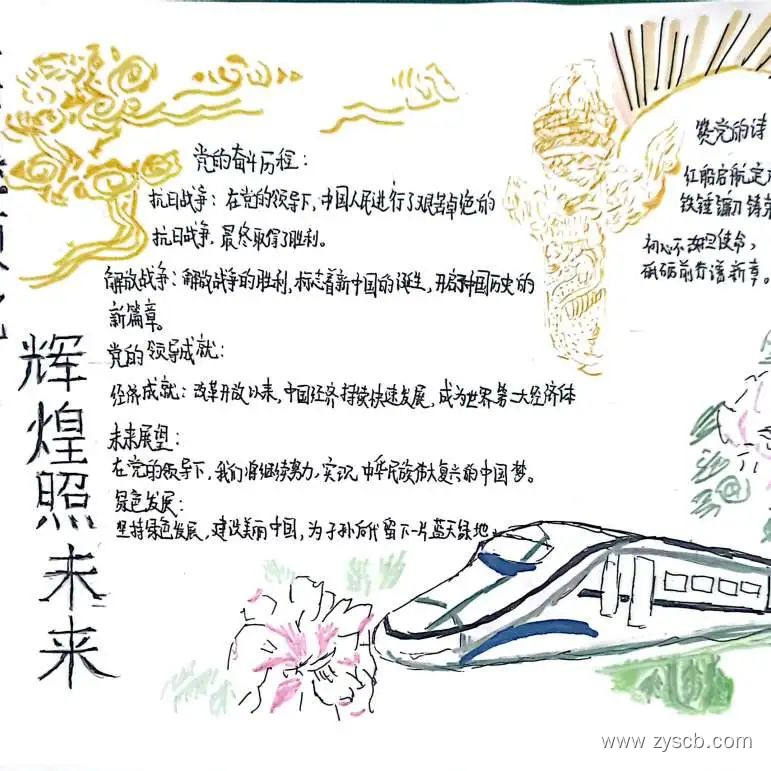 辉煌照未来
党的奋斗历程：
抗日战争：在党的领导下，中国人民进行了艰苦卓绝的
抗日战争，最终取得了胜利。
解放战争：解放战争的胜利，标志着新中国的诞生，开启中国历史的
新篇章。
党的领导成就：
经济成就：改革开放以来，中国经济持续快速发展，成为世界第二大经济体
未来展望：
在党的领导下，我们将继续努力，实现中华民族伟大复兴的中国梦。
绿色发展：
坚持绿色发展，建设美丽中国，为子孙后代留下一片蓝天绿地。
赞党的诗
红船启航定
铁锤镰刀铸
初心不改担使命，
砥砺前行谱新章。
www.zyscb.com